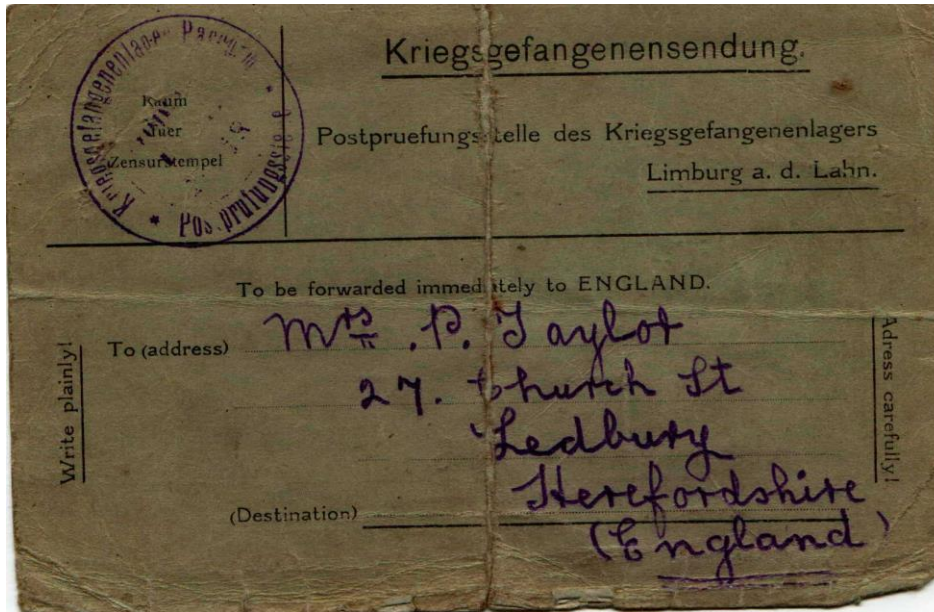 Kriegsgefangenensendung.
Kriegsgefangenenlager
Postprüfungsstelle
Raum
fuer
Zensurstempel
Postpruefungsstelle des Kriegsgefangenenlagers
Limburg a. d. Lahn.
To be forwarded immediately to ENGLAND.
Write plainly!
To (address)
Mrs. P. Taylor
27. Church St
Ledbury
Herefordshire
(Destination)
(England)
Adress carefully!